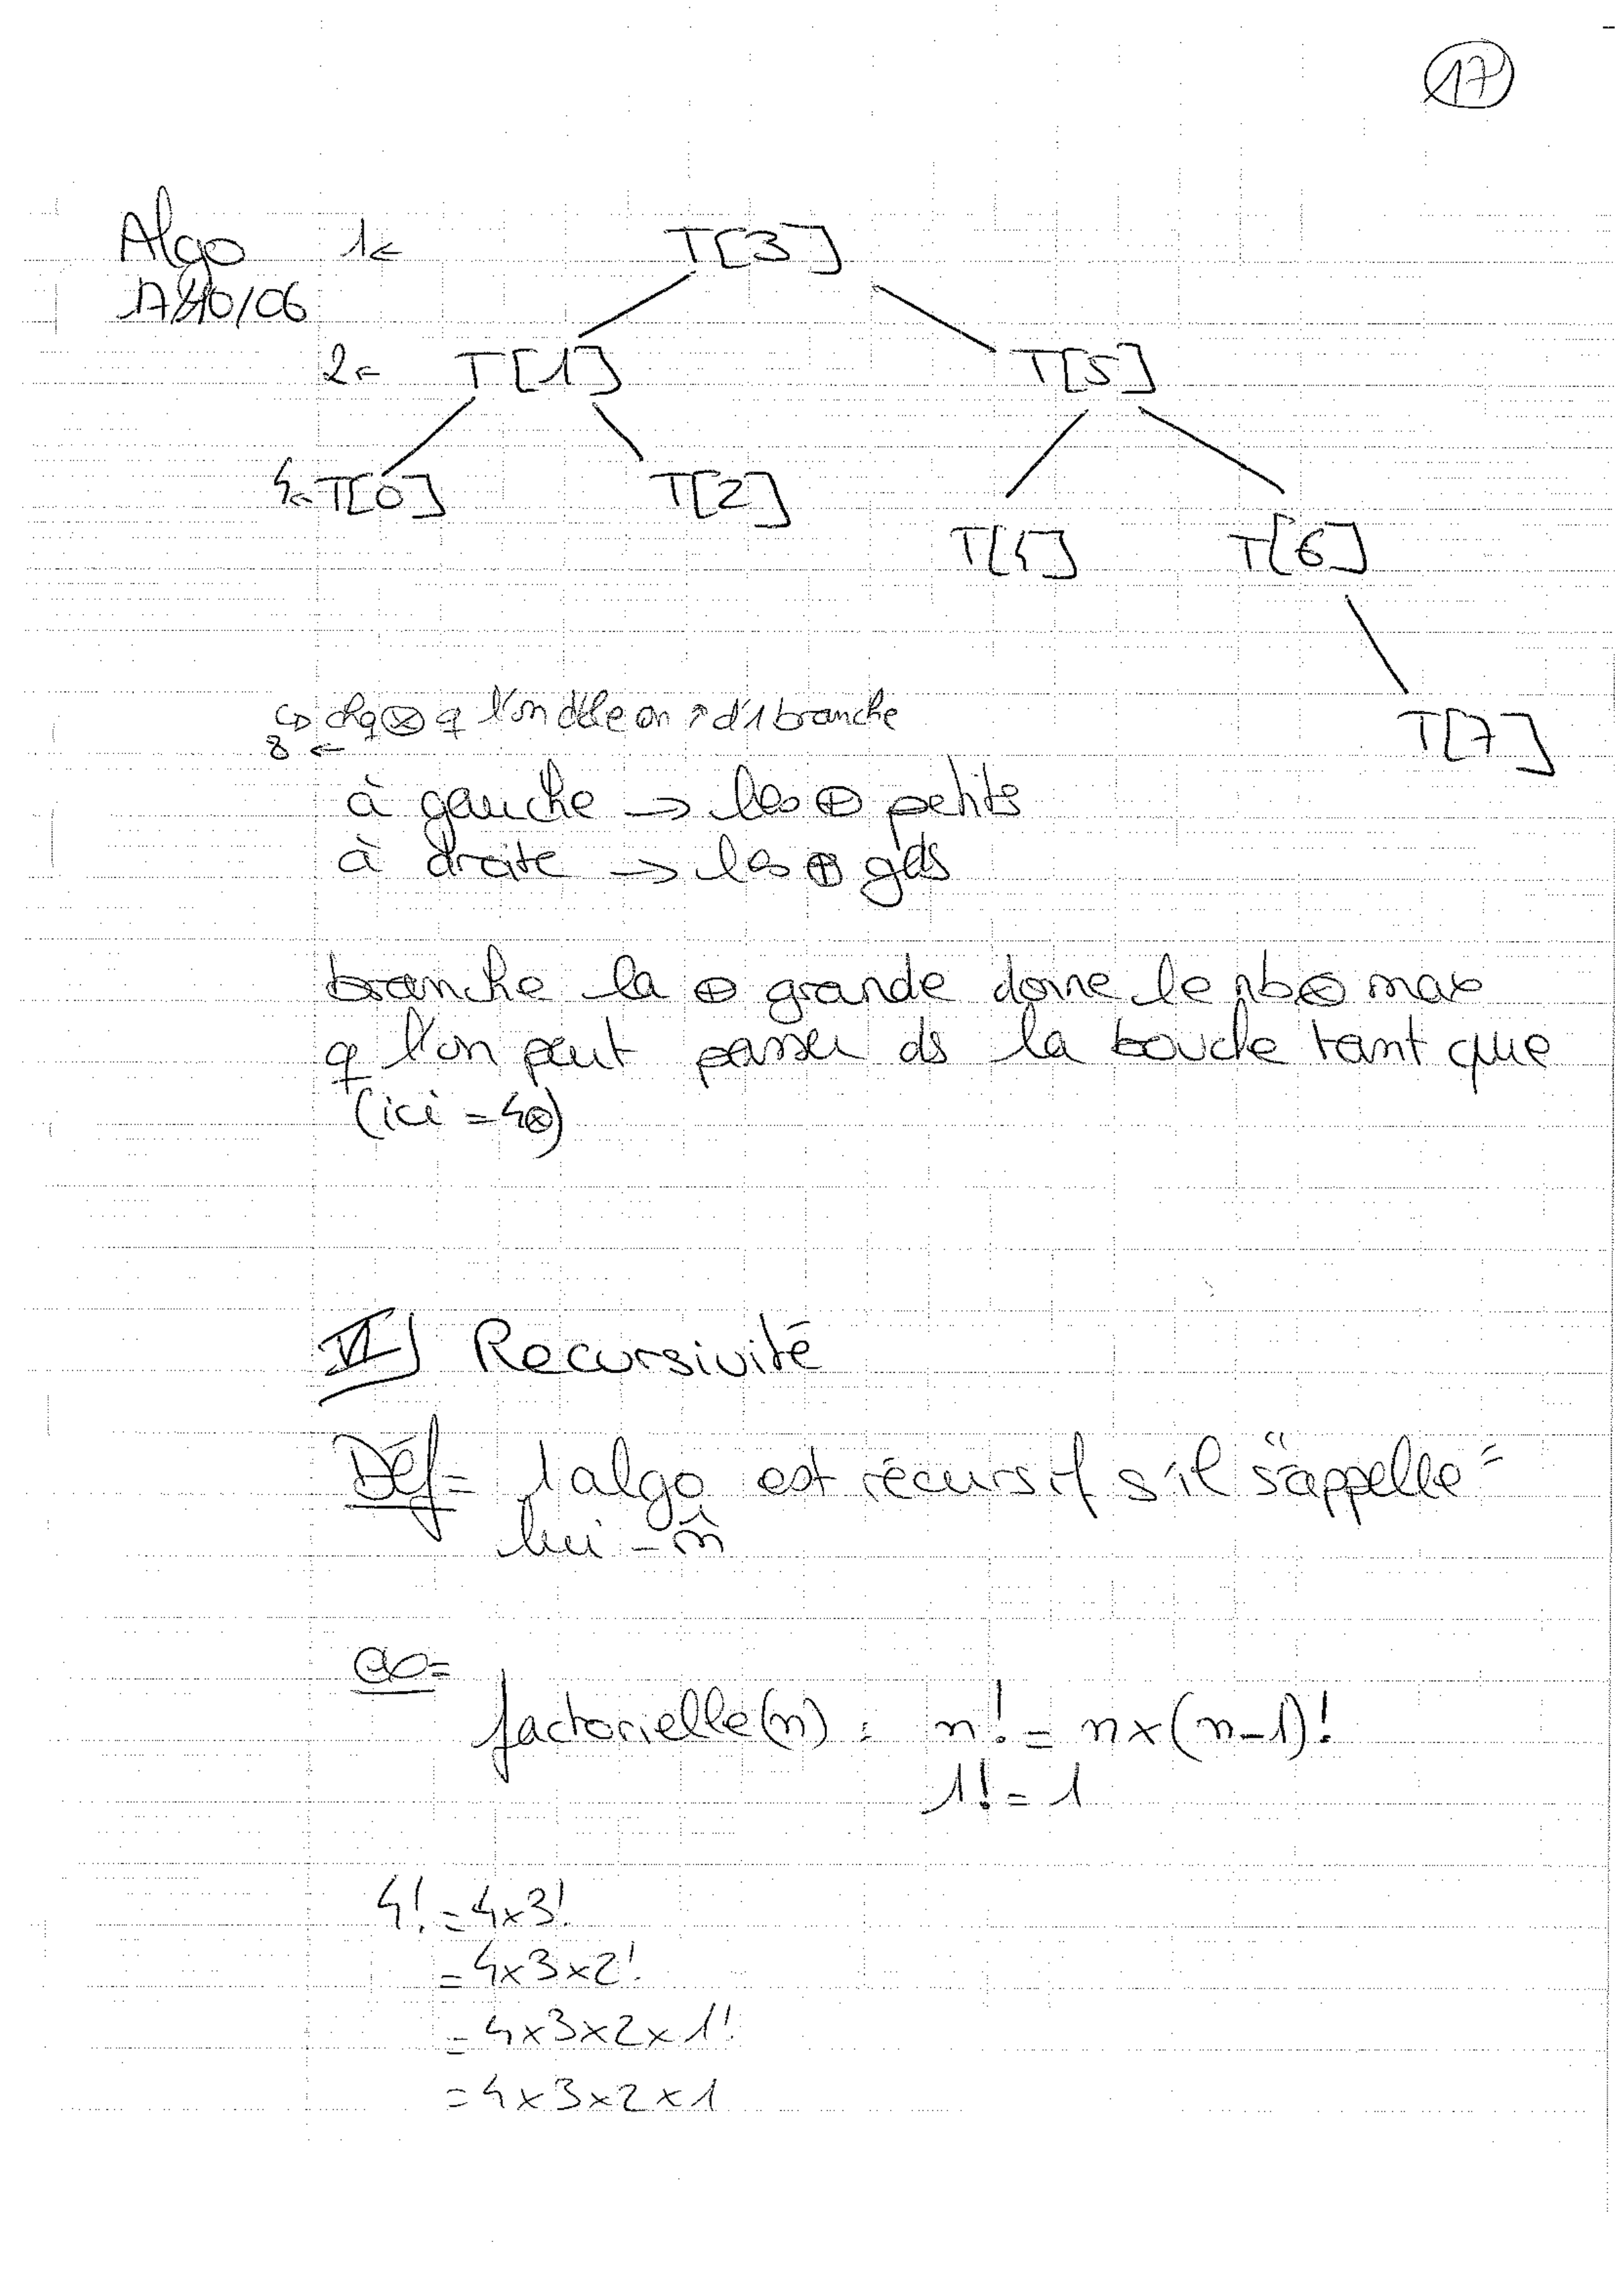 17
Algo 1← T[3]
17/10/06
2← T[1] T[5]
4← T[0] T[2]
T[4] T[6]
↳ chq ⊗ q l'on dble on ↗ d'1 branche
T[7]
8 ←
à gauche → les ⊕ petits
à droite → les ⊕ gds
branche la ⊕ grande donne le nb ⊗ max
q l'on peut passer ds la boucle tant que
(ici = 4⊗)
VI) Recursivité
Déf= 1 algo est récursif s'il "s'appelle"
lui-m̂
ex=
factorielle(n) : n! = n×(n-1)!
1! = 1
4! = 4×3!
= 4×3×2!
= 4×3×2×1!
= 4×3×2×1